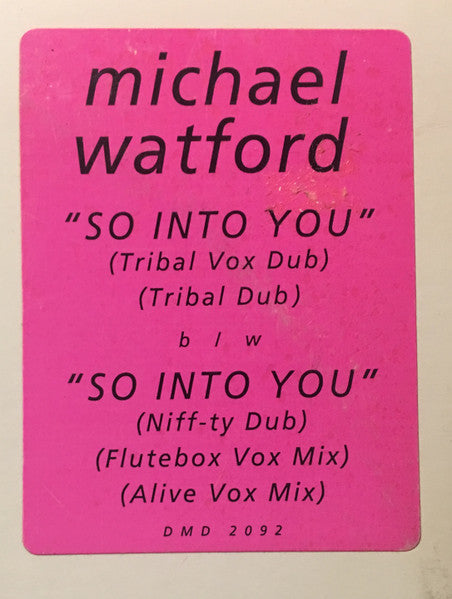 michael
watford
"SO INTO YOU"
(Tribal Vox Dub)
(Tribal Dub)
b / w
"SO INTO YOU"
(Niff-ty Dub)
(Flutebox Vox Mix)
(Alive Vox Mix)
DMD 2092